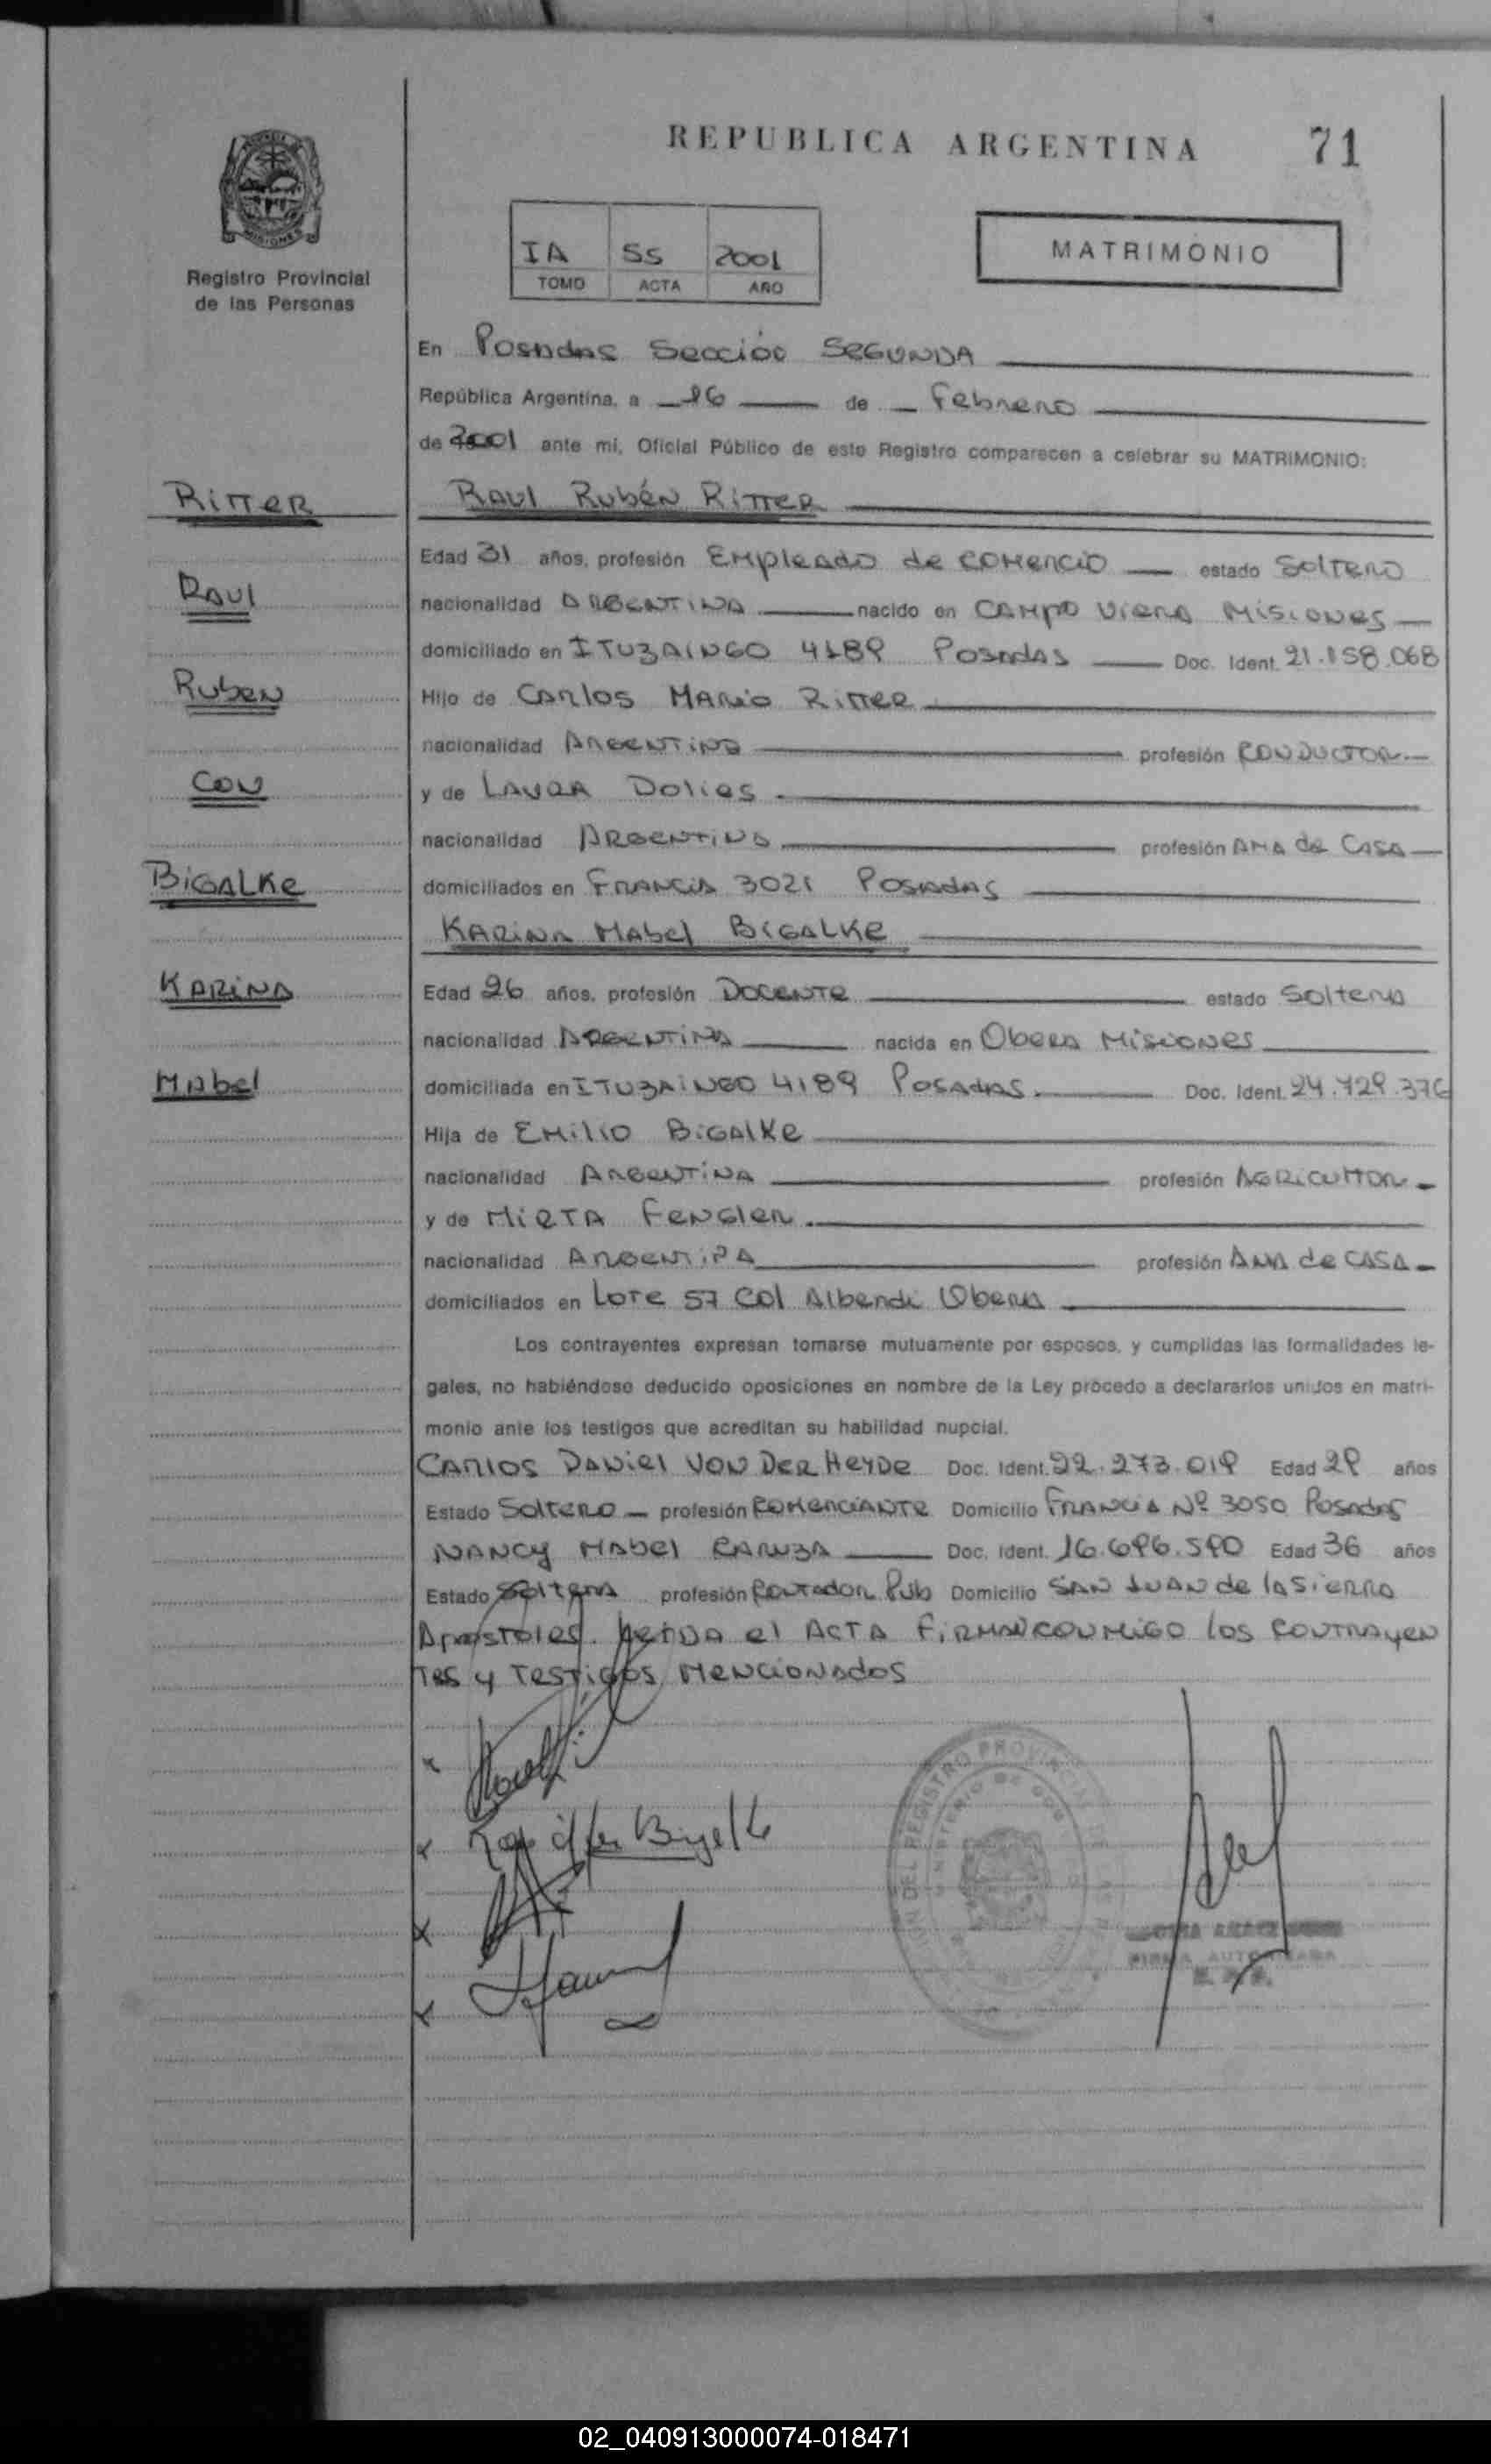 REPUBLICA ARGENTINA 71
MISIONES
Registro Provincial
de las Personas
IA 55 2001
TOMO ACTA AÑO
MATRIMONIO
En Posadas Sección SEGUNDA
República Argentina, a 16 de Febrero
de 2001 ante mi, Oficial Público de este Registro comparecen a celebrar su MATRIMONIO:
Ritter
Raul
Ruben
Con
Bigalke
Karina
Mabel
Raul Rubén Ritter
Edad 31 años, profesión Empleado de Comercio estado Soltero
nacionalidad Argentina nacido en Campo Viera Misiones
domiciliado en Ituzaingo 4189 Posadas Doc. Ident. 21.158.068
Hijo de Carlos Mario Ritter
nacionalidad Argentina profesión Conductor
y de Laura Dolies
nacionalidad Argentina profesión Ama de Casa
domiciliados en Francia 3021 Posadas
Karina Mabel Bigalke
Edad 26 años, profesión Docente estado Soltera
nacionalidad Argentina nacida en Obera Misiones
domiciliada en Ituzaingo 4189 Posadas Doc. Ident. 24.729.376
Hija de Emilio Bigalke
nacionalidad Argentina profesión Agricultor
y de Mirta Fengler
nacionalidad Argentina profesión Ama de Casa
domiciliados en Lote 57 Col Alberdi Obera
Los contrayentes expresan tomarse mutuamente por esposos, y cumplidas las formalidades le-
gales, no habiéndose deducido oposiciones en nombre de la Ley procedo a declararlos unidos en matri-
monio ante los testigos que acreditan su habilidad nupcial.
Carlos Daniel Von Der Heyde Doc. Ident. 22.273.019 Edad 29 años
Estado Soltero profesión Comerciante Domicilio Francia Nº 3050 Posadas
Nancy Mabel Doc. Ident. 16.696.590 Edad 36 años
Estado Soltera profesión Contador Pub Domicilio San Juan de la Sierra
Apostoles. Leida el Acta firman conmigo los contrayen
tes y testigos mencionados
REGISTRO PROVINCIAL DE
02_040913000074-018471